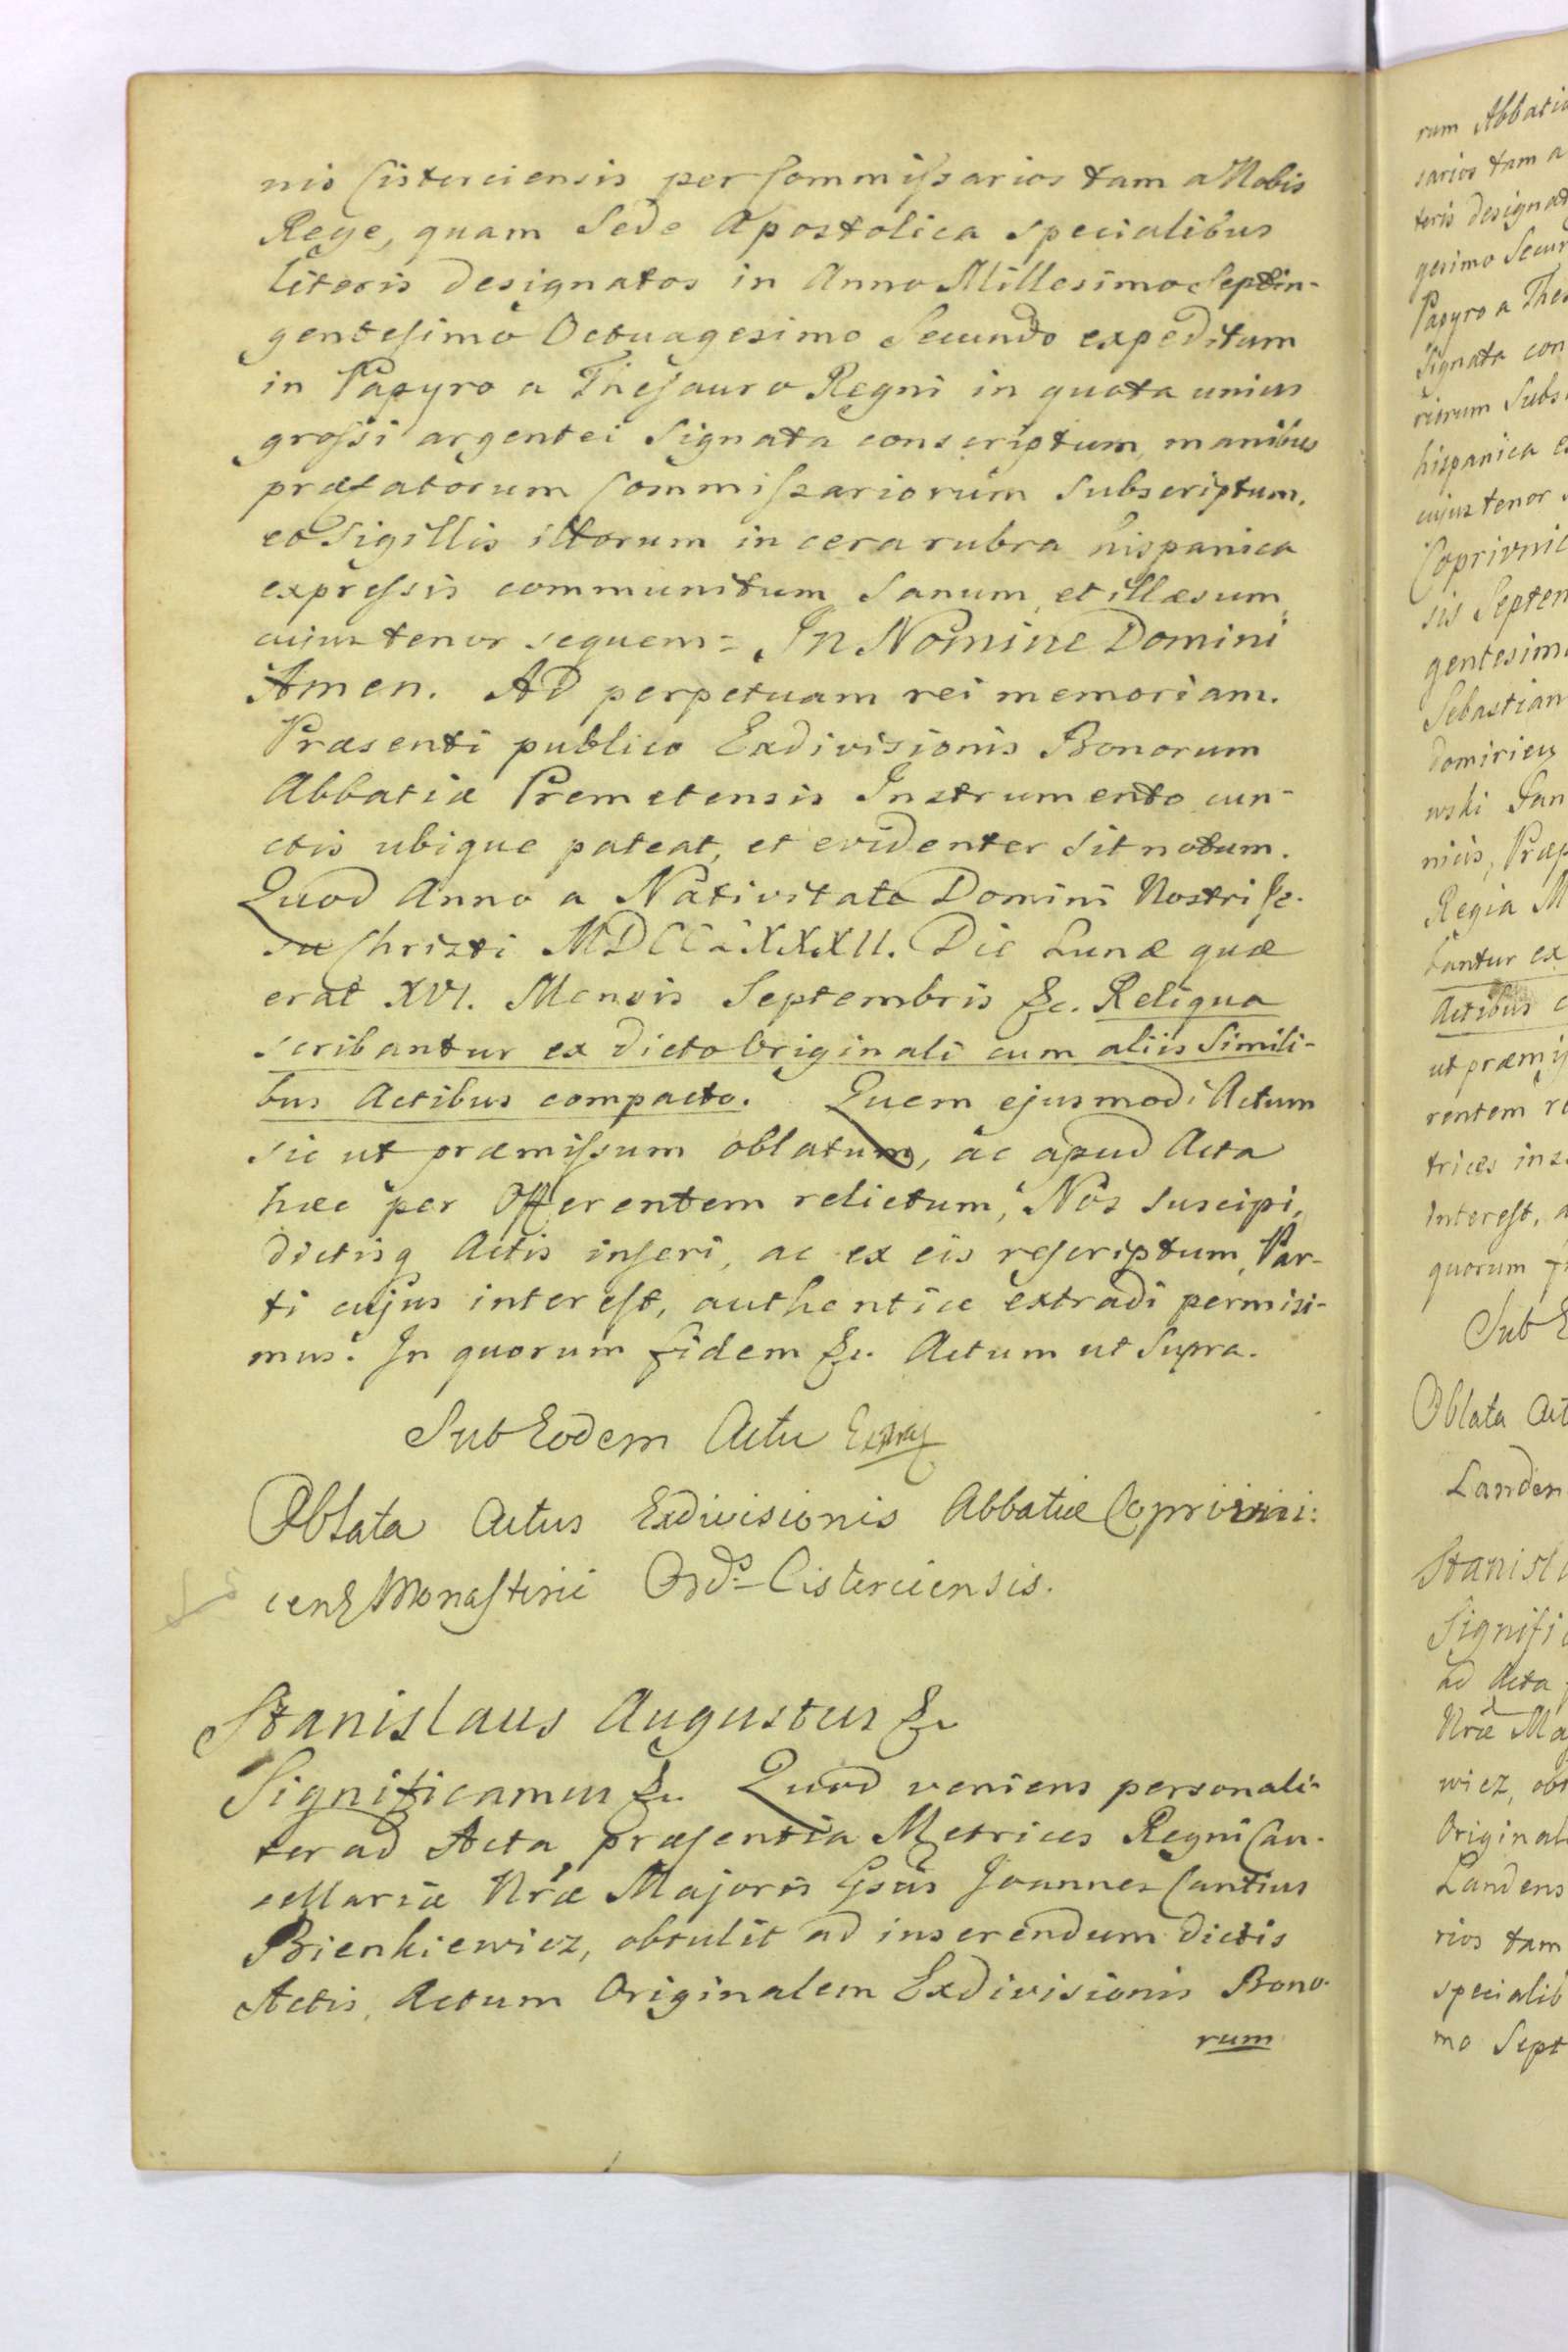 nis Cisterciensis per Commissarios tam a Nobis
Rege, quam Sede Apostolica specialibus
literis designatos in Anno Millesimo Septin-
gentesimo Octuagesimo Secundo expeditum
in Papyro a Thesauro Regni in quota unius
grossi argentei Signata conscriptum, manibus
præfatorum Commissariorum Subscriptum,
et Sigillis illorum in cera rubra hispanica
expressis communitum Sanum, et illæsum,
cujus tenor sequens = In Nomine Domini
Amen. Ad perpetuam rei memoriam.
Præsenti publico Exdivisionis Bonorum
Abbatiæ Premetensis Instrumento cun-
ctis ubique pateat, et evidenter sit notum.
Quod Anno a Nativitate Domini Nostri Je-
su Christi MDCCLXXXII. Die Lunæ quæ
erat XVI. Mensis Septembris &c. Reliqua
scribantur ex dicto Originali cum aliis Simili-
bus Actibus compacto. Quem ejusmodi Actum
sic ut præmissum oblatum, ac apud Acta
hæc per Offerentem relictum, Nos suscipi,
dictisq Actis inseri, ac ex eis rescriptum, Par-
ti cujus interest, authentice extradi permisi-
mus. In quorum fidem &c. Actum ut Supra.
Sub Eodem Actu
Oblata Actus Exdivisionis Abbatiæ Coprivni:
cens Monasterii Ord̅s Cisterciensis.
Stanislaus Augustus &c
Significamus &c. Quod veniens personali-
ter ad Acta præsentia Metrices Regni Can-
cellariæ Nræ Majoris Gsus Joannes Cantius
Bienkiewicz, obtulit ad inserendum dictis
Actis, Actum Originalem Exdivisionis Bono-
rum
rum Abbatia
sarios tam a
teris designat
gesimo Secun
Papyro a Thes
Signata con
riorum Subs
hispanica e
cujus tenor s
Coprivnic
sis Septem
gentesim
Sebastian
domirien
wski
nicis, Præp
Regia M
bantur ex
Actibus c
ut præmis
rentem re
trices ins
interest, a
quorum fi
Sub E
Oblata Act
Landen
Stanisla
Signifi
ad Acta
Nræ Ma
wicz, obt
Original
Landens
rios tam
specialib
mo Sept